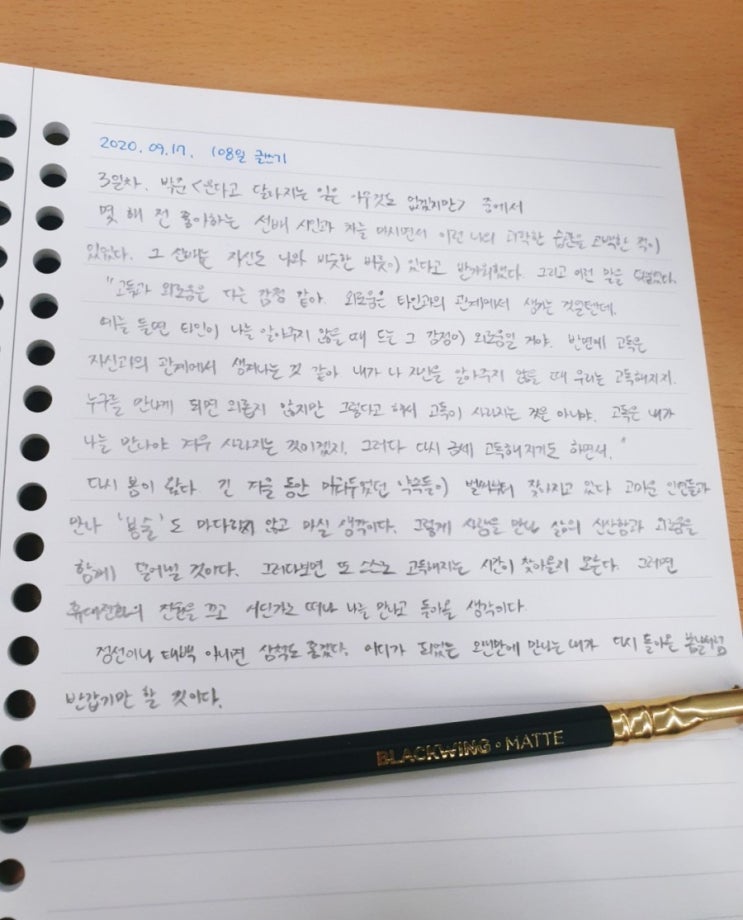 2020. 09. 17. 108일 글쓰기
3일차. 박준 <운다고 달라지는 일은 아무것도 없겠지만> 중에서
몇 해 전 좋아하는 선배 시인과 차를 마시면서 이런 나의 괴팍한 습관을 고백한 적이
있었다. 그 선배는 자신도 나와 비슷한 버릇이 있다고 반가워했다. 그리고 이런 말을 덧붙였다.
"고독과 외로움은 다른 감정 같아. 외로움은 타인과의 관계에서 생기는 것일텐데.
예를 들면 타인이 나를 알아주지 않을 때 드는 그 감정이 외로움일 거야. 반면에 고독은
자신과의 관계에서 생겨나는 것 같아. 내가 나 자신을 알아주지 않을 때 우리는 고독해지지.
누구를 만나게 되면 외롭지 않지만 그렇다고 해서 고독이 사라지는 것은 아니야. 고독은 내가
나를 만나야 겨우 사라지는 것이겠지. 그러다 다시 금세 고독해지기도 하면서."
다시 봄이 왔다. 긴 겨울 동안 미뤄두었던 약속들이 벌써부터 잦아지고 있다 고마운 인연들과
만나 '봄술'도 마다하지 않고 마실 생각이다. 그렇게 사람을 만나 삶의 신산함과 외로움을
함께 덜어낼 것이다. 그러다보면 또 스스로 고독해지는 시간이 찾아올지 모른다. 그러면
휴대전화의 전원을 끄고 어딘가로 떠나 나를 만나고 돌아올 생각이다.
정선이나 태백 아니면 삼척도 좋겠다. 어디가 되었든 오랜만에 만나는 내가 다시 돌아온 봄날처럼
반갑기만 할 것이다.
BLACKWING MATTE